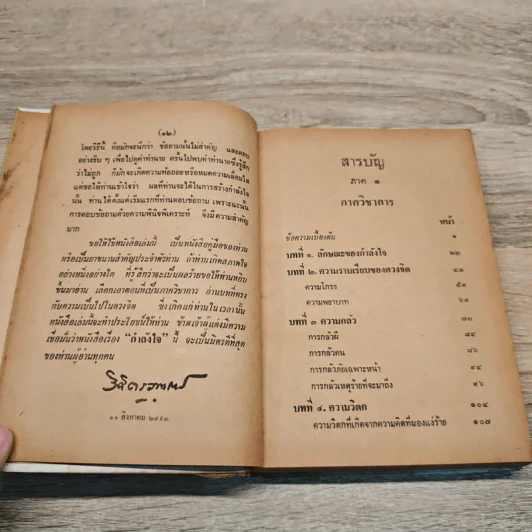 (๑๒)
โดยวิธีนี้ คือมักจะนึกว่า ข้อถามนั้นไม่สำคัญ และตอบ
อย่างรีบ ๆ เพื่อไปดูคำทำนาย ครั้นไปพบคำทำนายซึ่งรู้สึก
ว่าไม่ถูก ก็มักจะเกิดความท้อถอยหรือหมดความเลื่อมใส
แต่ขอให้ท่านเข้าใจว่า ผลที่ท่านจะได้ในการสร้างกำลังใจ
นั้น ท่านได้ตั้งแต่เริ่มแรกที่ท่านตอบข้อถาม เพราะฉะนั้น
การตอบข้อถามด้วยความพินิจพิเคราะห์ จึงมีความสำคัญ
มาก
ขอให้ใช้หนังสือเล่มนี้ เป็นหนังสือคู่มือของท่าน
หรือเป็นยาขนานสำคัญประจำตัวท่าน ถ้าท่านเกิดสภาพใจ
อย่างหนึ่งอย่างใด ที่รู้สึกว่าจะเป็นผลร้ายขอให้ท่านหยิบ
ขึ้นมาอ่าน เลือกเอาตอนที่เป็นภาควิชาการ อ่านบทที่ตรง
กับความเป็นไปในดวงจิต ซึ่งเกิดแก่ท่านในเวลานั้น
หนังสือเล่มนี้จะทำประโยชน์ให้ท่าน ข้าพเจ้าผู้แต่งมีความ
เชื่อมั่นว่าหนังสือเรื่อง "กำลังใจ" นี้ จะเป็นมิตรดีที่สุด
ของท่านผู้อ่านทุกคน
๑๑ สิงหาคม ๒๔๙๓
สารบัญ
ภาค ๑
ภาควิชาการ
หน้า
ข้อความเบื้องต้น ๑
บทที่ ๑. ลักษณะของกำลังใจ ๒๒
บทที่ ๒. ความราบเรียบของดวงจิต ๔๗
ความโกรธ ๕๙
ความพยาบาท ๖๙
บทที่ ๓ ความกลัว ๗๖
การกลัวผี ๘๔
การกลัวคน ๘๖
การกลัวภัยเฉพาะหน้า ๙๔
การกลัวเหตุร้ายที่จะมาถึง ๙๖
บทที่ ๔. ความวิตก ๑๐๔
ความวิตกที่เกิดจากความคิดที่มองแง่ร้าย ๑๐๗